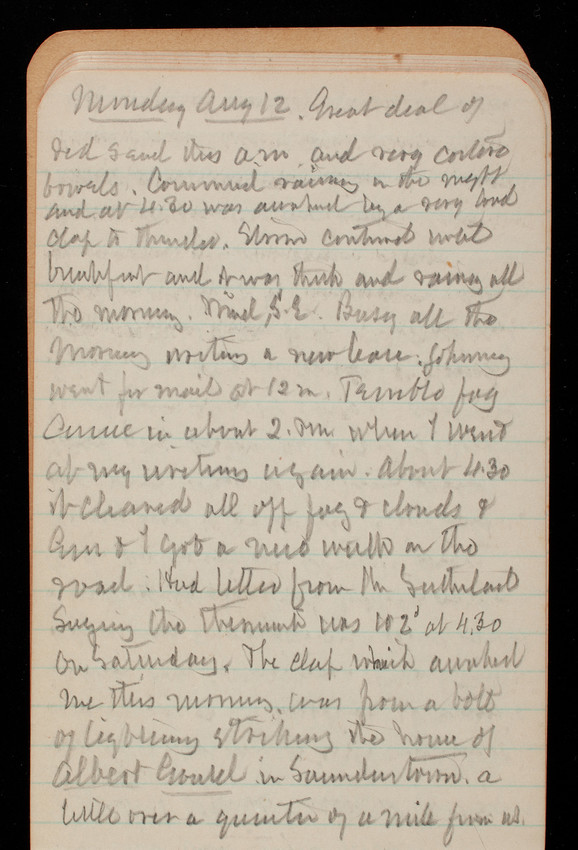 Monday Aug 12. Great deal of
red sand this a.m. and very costive
bowels. Continued raining in the night
and at 4.30 was awaked by a very loud
clap to thunder. Storm continued until
breakfast and it was thick and rainy all
the morning. Wind S.E. Busy all the
morning writing a new lease. Johnny
went for mail at 12 m. Terrible fog
came in about 2. P.m. when I went
at my writing again. About 4.30
it cleared all off fog & clouds &
Em & I got a nice walk on the
road. Had letter from Mr Sutherland
Saying the thermometer was 102° at 4.30
on Saturday. The clap which awaked
me this morning, was from a bolt
of lightning striking the house of
Albert in Saunderstown. a
little over a quarter of a mile from us.